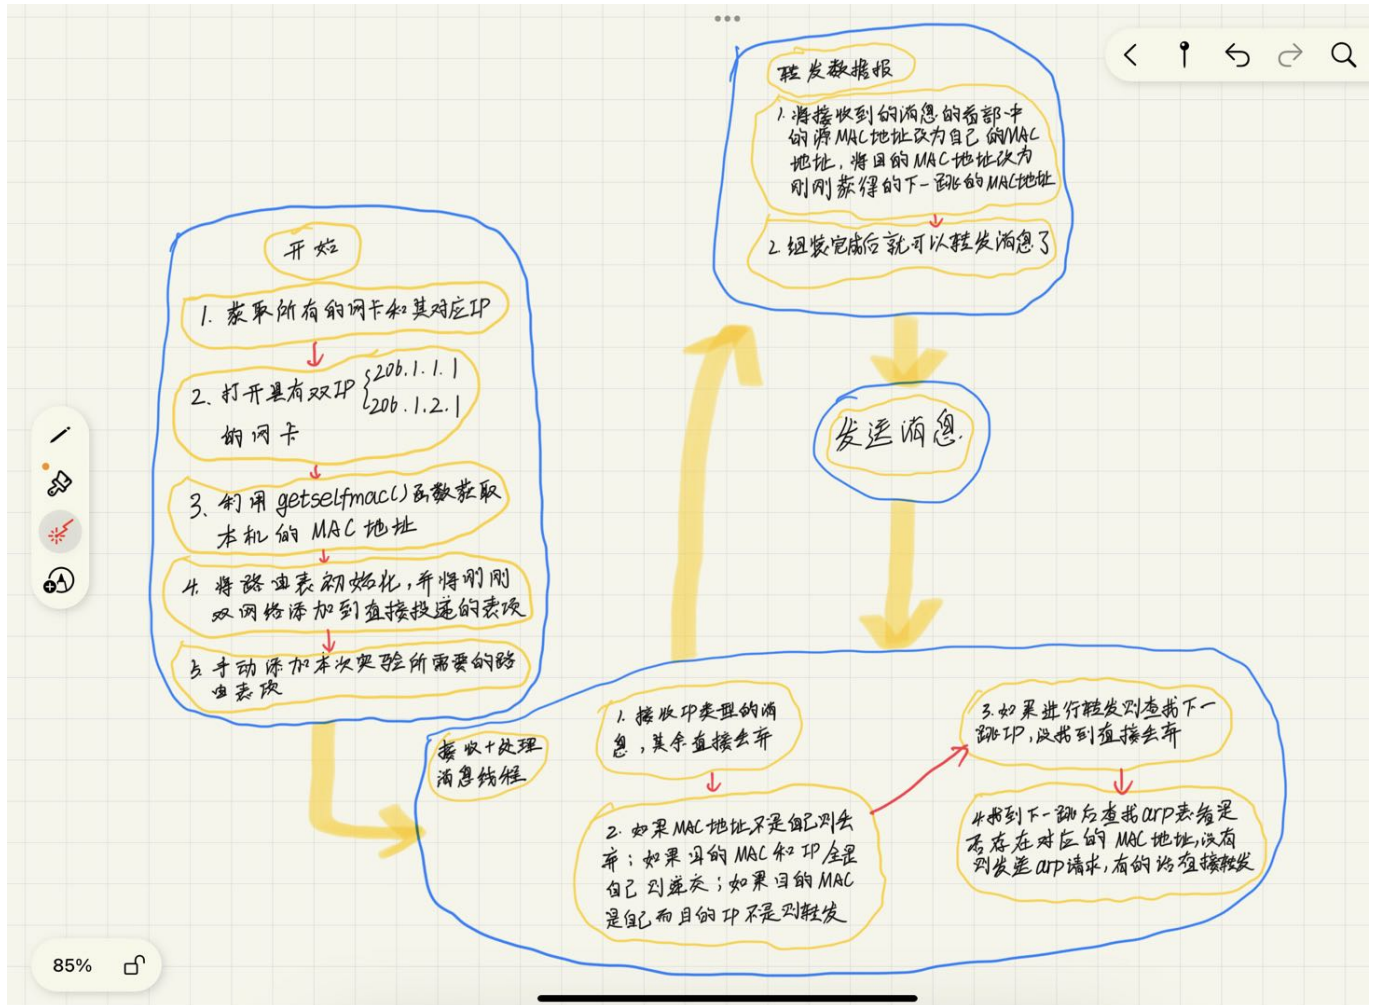 开始
1. 获取所有的网卡和其对应IP
2、打开具有双IP
206.1.1.1
206.1.2.1
的网卡
3、利用getselfmac()函数获取
本机的MAC地址
4. 将路由表初始化,并将刚刚
双网络添加到直接投递的表项
5 手动添加本次实验所需要的路
由表项
接收+处理
消息线程
1. 接收IP类型的消
息,其余直接丢弃
2. 如果MAC地址不是自己则丢
弃;如果目的MAC和IP全是
自己则递交;如果目的MAC
是自己而目的IP不是则转发
3.如果进行转发则查找下一
跳IP,没找到直接丢弃
4.找到下一跳后查找arp表看是
否存在对应的MAC地址,没有
则发送arp请求,有的话直接转发
转发数据报
1. 将接收到的消息的首部中
的源MAC地址改为自己的MAC
地址,将目的MAC地址改为
刚刚获得的下一跳的MAC地址
2.组装完成后就可以转发消息了
发送消息
85%